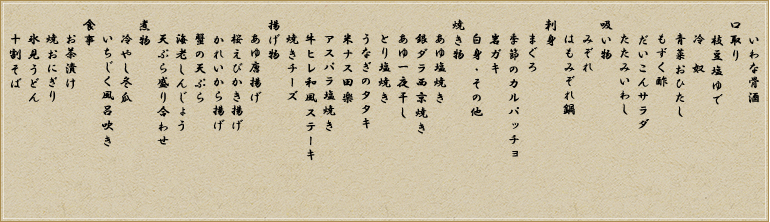 いわな骨酒
口取り
枝豆塩ゆで
冷 奴
青菜おひたし
もずく酢
だいこんサラダ
たたみいわし
吸い物
みぞれ
はもみぞれ鍋
刺身
まぐろ
季節のカルパッチョ
岩ガキ
白身・その他
焼き物
あゆ塩焼き
銀ダラ西京焼き
あゆ一夜干し
とり塩焼き
うなぎのタタキ
米ナス田楽
アスパラ塩焼き
牛ヒレ和風ステーキ
焼きチーズ
揚げ物
あゆ唐揚げ
桜えびかき揚げ
かれいから揚げ
蟹の天ぷら
海老しんじょう
天ぷら盛り合わせ
煮物
冷やし冬瓜
いちじく風呂吹き
食事
お茶漬け
焼おにぎり
氷見うどん
十割そば